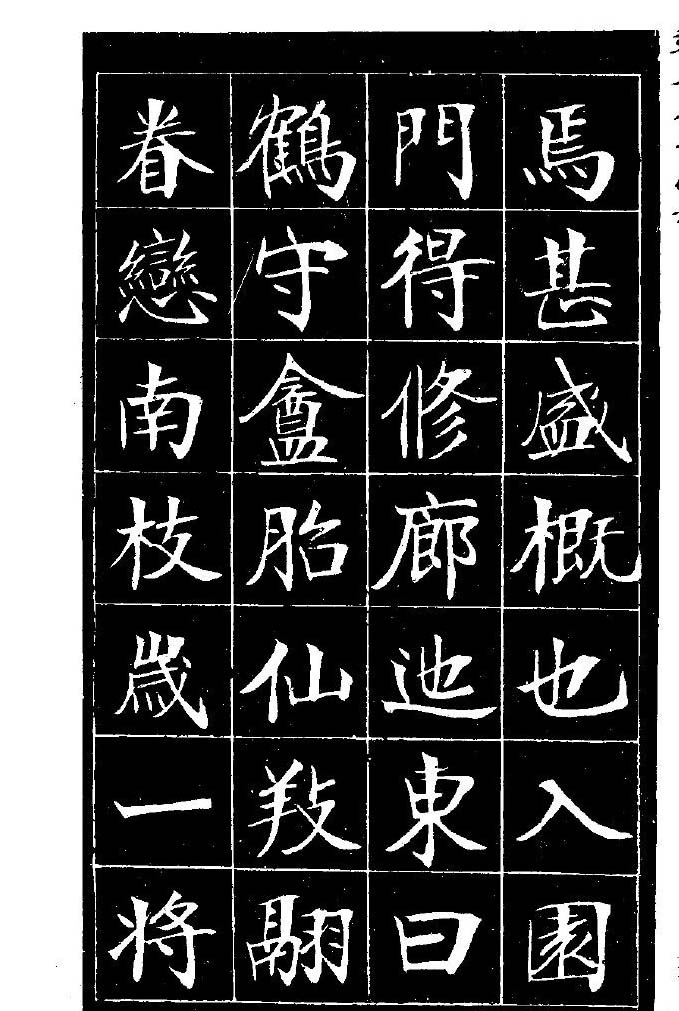 焉甚盛概也入園
門得修廊迤東曰
鶴守盦胎仙㪇翮
眷戀南枝歲一將